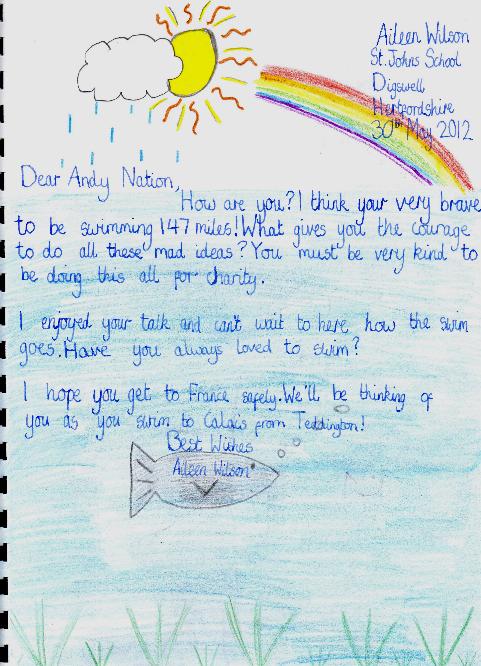 Aileen Wilson
St. Johns School
Digswell
Hertfordshire
30th May 2012
Dear Andy Nation,
How are you? I think your very brave
to be swimming 147 miles! What gives you the courage
to do all these mad ideas? You must be very kind to
be doing this all for charity.
I enjoyed your talk and can't wait to here how the swim
goes. Have you always loved to swim?
I hope you get to France safely. We'll be thinking of
you as you swim to Calais from Teddington!
Best Wishes
Aileen Wilson